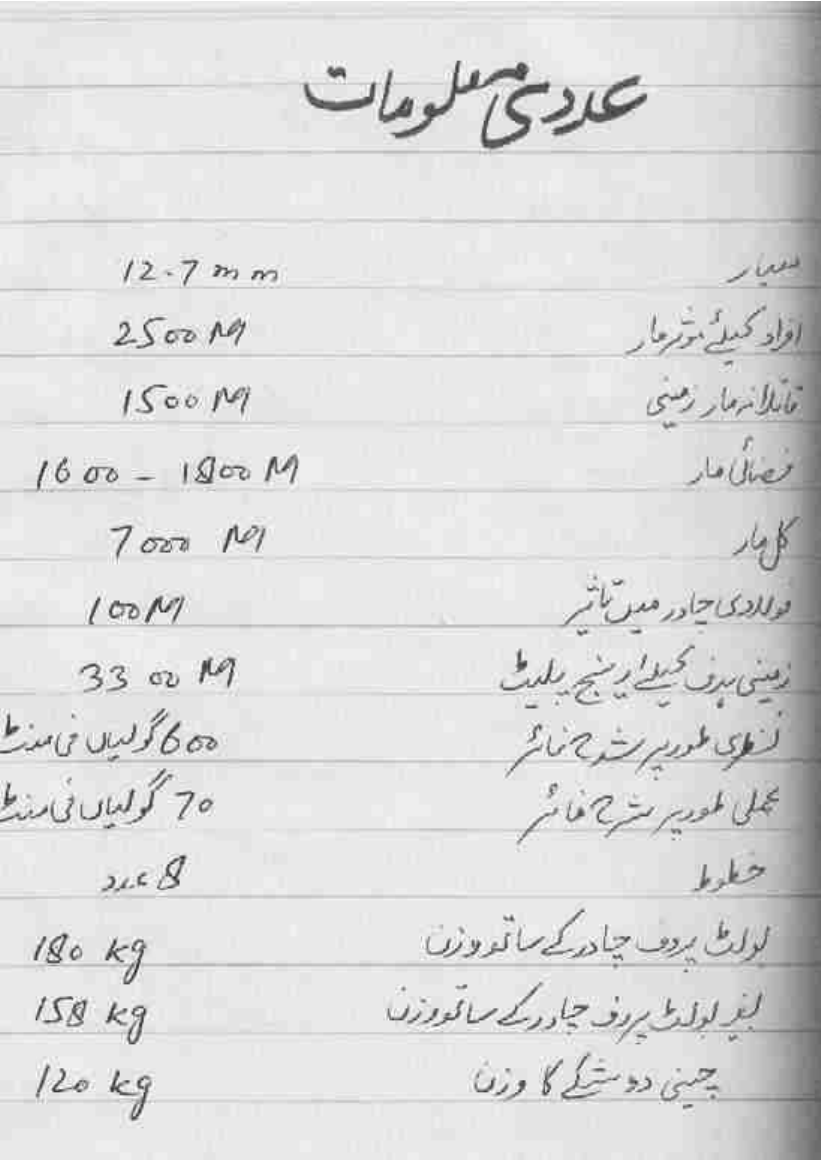 عددی معلومات
معیار 12.7 mm
افراد کیلئے مؤثر مار 2500 M
قاتلانہ مار زمینی 1500 M
فضائی مار 1600 - 1800 M
کل مار 7000 M
فولادی چادر میں تاثیر 100 M
زمینی ہدف کیلئے رینج پلیٹ 3300 M
نظری طور پر شرح فائر 600 گولیاں فی منٹ
عملی طور پر شرح فائر 70 گولیاں فی منٹ
خطوط 8 عدد
بولٹ پروف چادر کے ساتھ وزن 180 kg
بغیر بولٹ پروف چادر کے ساتھ وزن 158 kg
چینی دوشکے کا وزن 120 kg